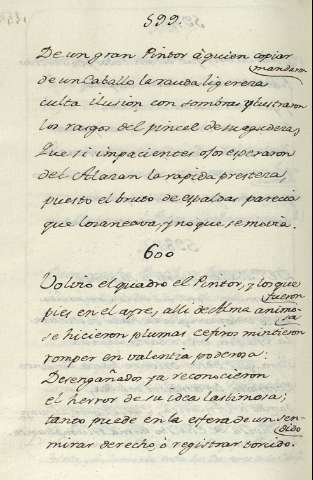 599.
De un gran Pintor à quien copiar
mandaron
de un Caballo la rauda ligereza
culta ilusion con sombras ylustraron
los rasgos del pincel de su agudeza,
Que si impacientes ojos esperaron
del Alazan la rapida presteza,
puesto el bruto de espaldas parecia
que lozaneava, y no que se movia.
600
Volvió el quadro el Pintor, y los que
fueron
pies en el ayre, alli de Alma animo-
sa
se hicieron plumas cefiros mintieron
romper en valentia poderosa:
Desengañados ya reconocieron
el herror de su idea lastimosa;
tanto puede en la esfera de un sen-
dido
mirar derecho, ò registrar torcido.